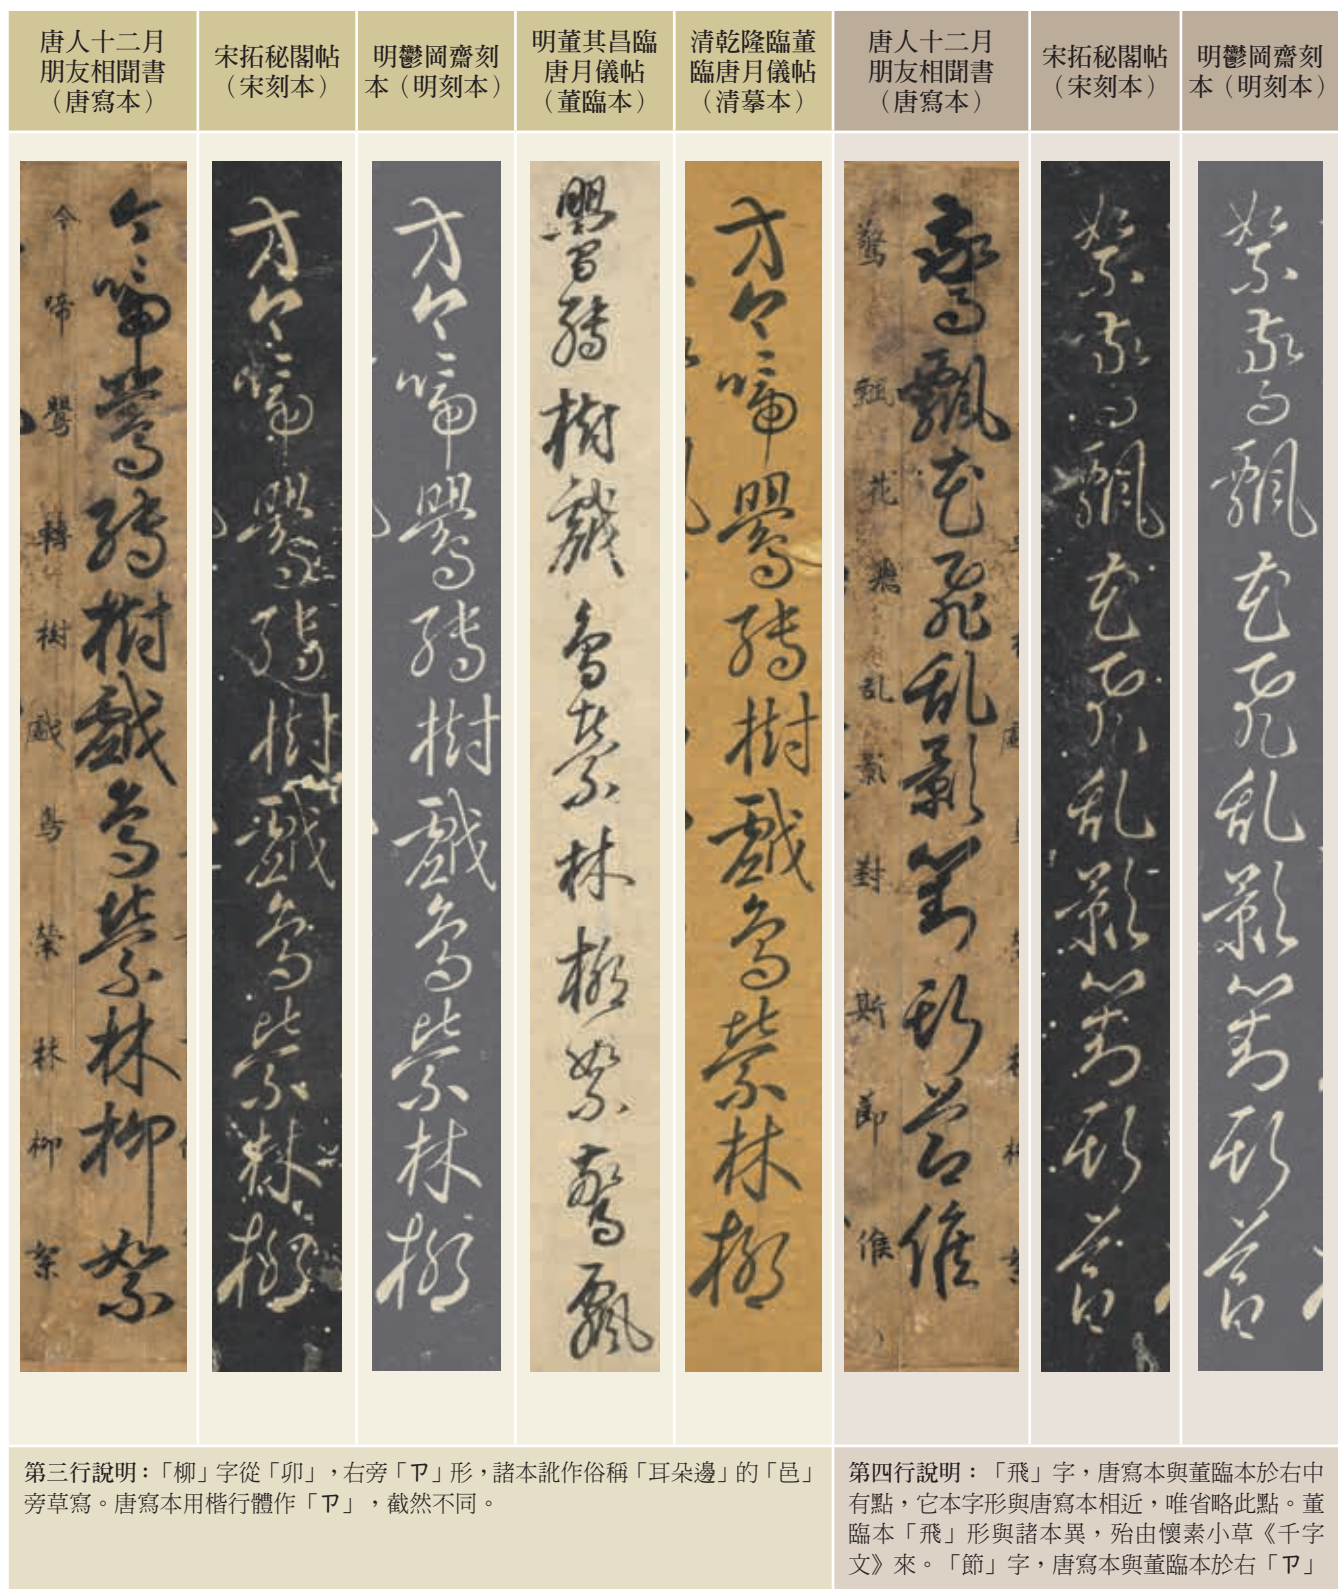 唐人十二月
朋友相聞書
（唐寫本）
宋拓秘閣帖
（宋刻本）
明鬱岡齋刻
本（明刻本）
明董其昌臨
唐月儀帖
（董臨本）
清乾隆臨董
臨唐月儀帖
（清摹本）
唐人十二月
朋友相聞書
（唐寫本）
宋拓秘閣帖
（宋刻本）
明鬱岡齋刻
本（明刻本）
今啼鶯轉樹戲鳥縈林柳絮
今啼鶯轉樹戲鳥縈林柳絮
方今啼鶯轉樹戲鳥縈林柳
方今啼鶯轉樹戲鳥縈林柳
鶯轉樹戲鳥縈林柳絮驚飄
方今啼鶯轉樹戲鳥縈林柳
驚飄花飛乱影對斯節候
驚飄花飛乱影對斯節候
絮驚飄花飛乱影對斯節
絮驚飄花飛乱影對斯節
第三行說明：「柳」字從「卯」，右旁「卩」形，諸本訛作俗稱「耳朵邊」的「邑」
旁草寫。唐寫本用楷行體作「卩」，截然不同。
第四行說明：「飛」字，唐寫本與董臨本於右中
有點，它本字形與唐寫本相近，唯省略此點。董
臨本「飛」形與諸本異，殆由懷素小草《千字
文》來。「節」字，唐寫本與董臨本於右「卩」